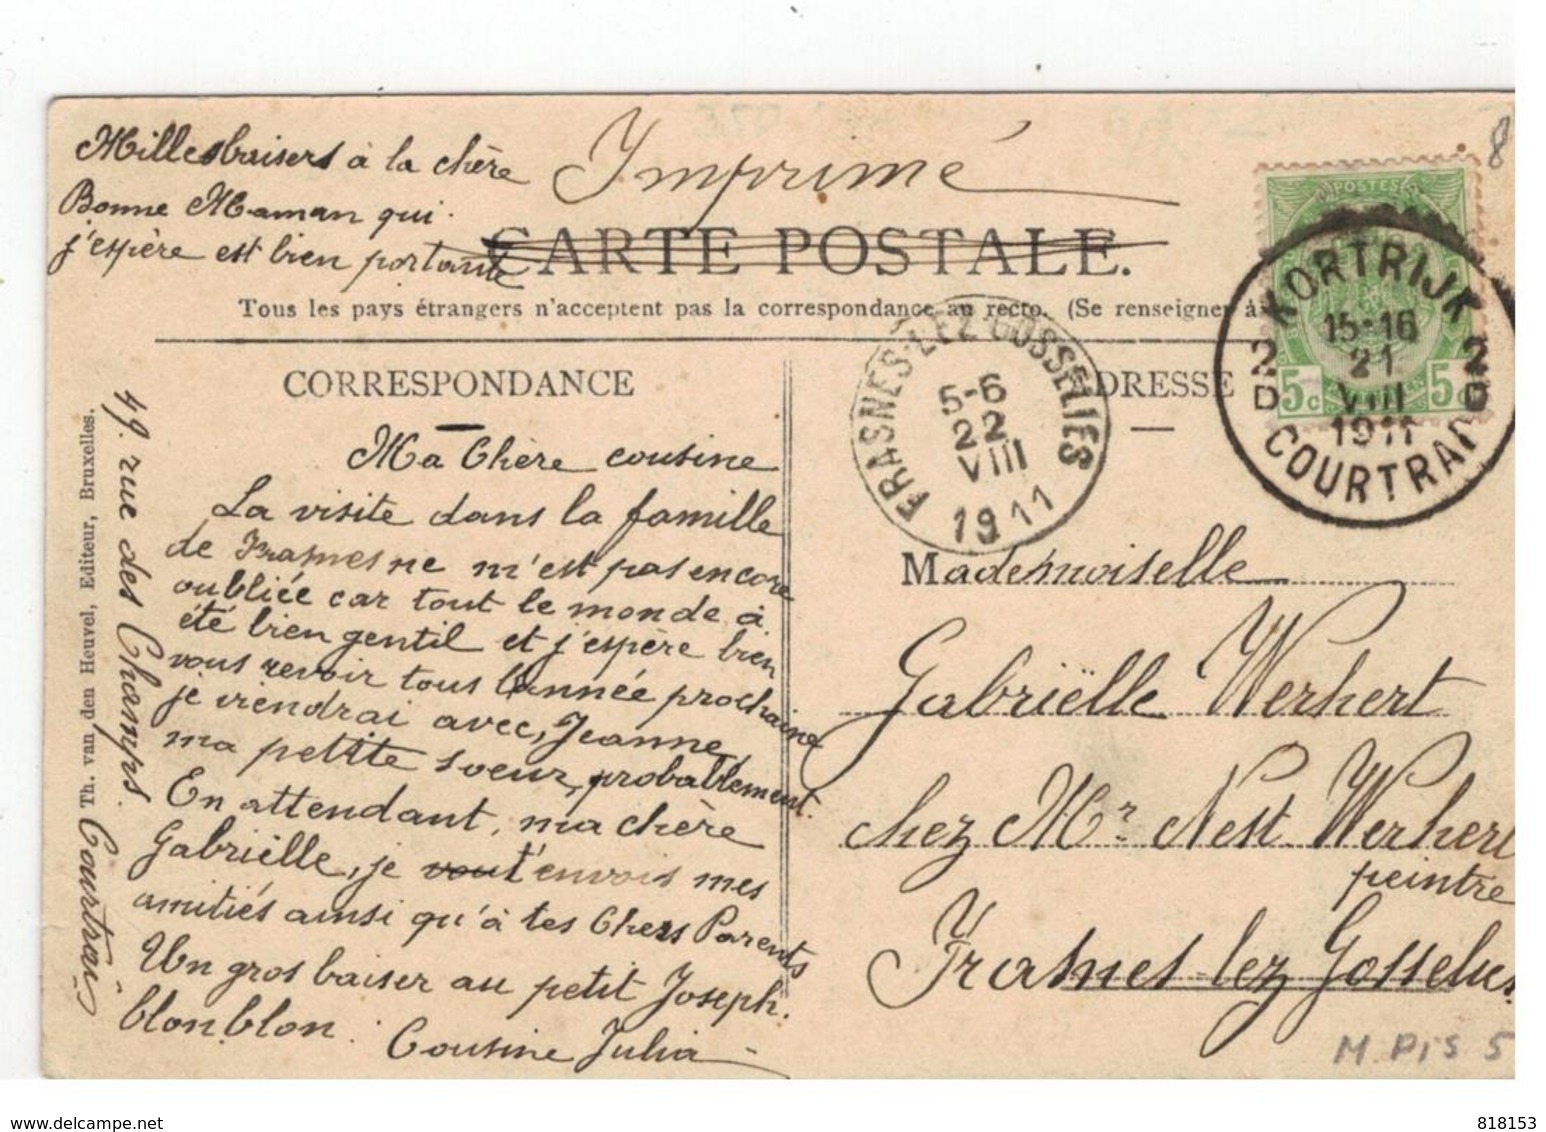 Milles baisers à la chère
Bonne Maman qui
j'espère est bien portante
Imprimé
CARTE POSTALE.
Tous les pays étrangers n'acceptent pas la correspondance au recto. (Se renseigner à
CORRESPONDANCE
Ma Chère cousine
La visite dans la famille
de Frasnes ne m'est pas encore
oubliée car tout le monde à
été bien gentil et j'espère bien
vous revoir tous l'année prochaine
je viendrai avec, Jeanne,
ma petite soeur, probablement.
En attendant, ma chère
Gabriëlle, je vou t'envois mes
amitiés ainsi qu'à tes Chers Parents
Un gros baiser au petit Joseph.
blonblon. Cousine Julia
49. rue des Champs.
Courtrai
Th. van den Heuvel, Editeur, Bruxelles.
FRASNES-LEZ-GOSSELIES
5-6
22
VIII
1911
ADRESSE
POSTES
5c 5c
KORTRIJK
15-16
2D 21 2D
VIII
1911
COURTRAI
8
Mademoiselle
Gabriëlle Werhert
chez Mr Nest Werhert
peintre
Frasnes-lez Gosselies
M. Pis 5
www.delcampe.net
818153